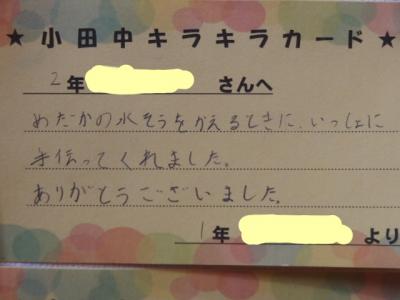 ★小田中キラキラカード★
2年 さんへ
めだかの水そうをかえるときに、いっしょに
手伝ってくれました。
ありがとうございました。
1年 より